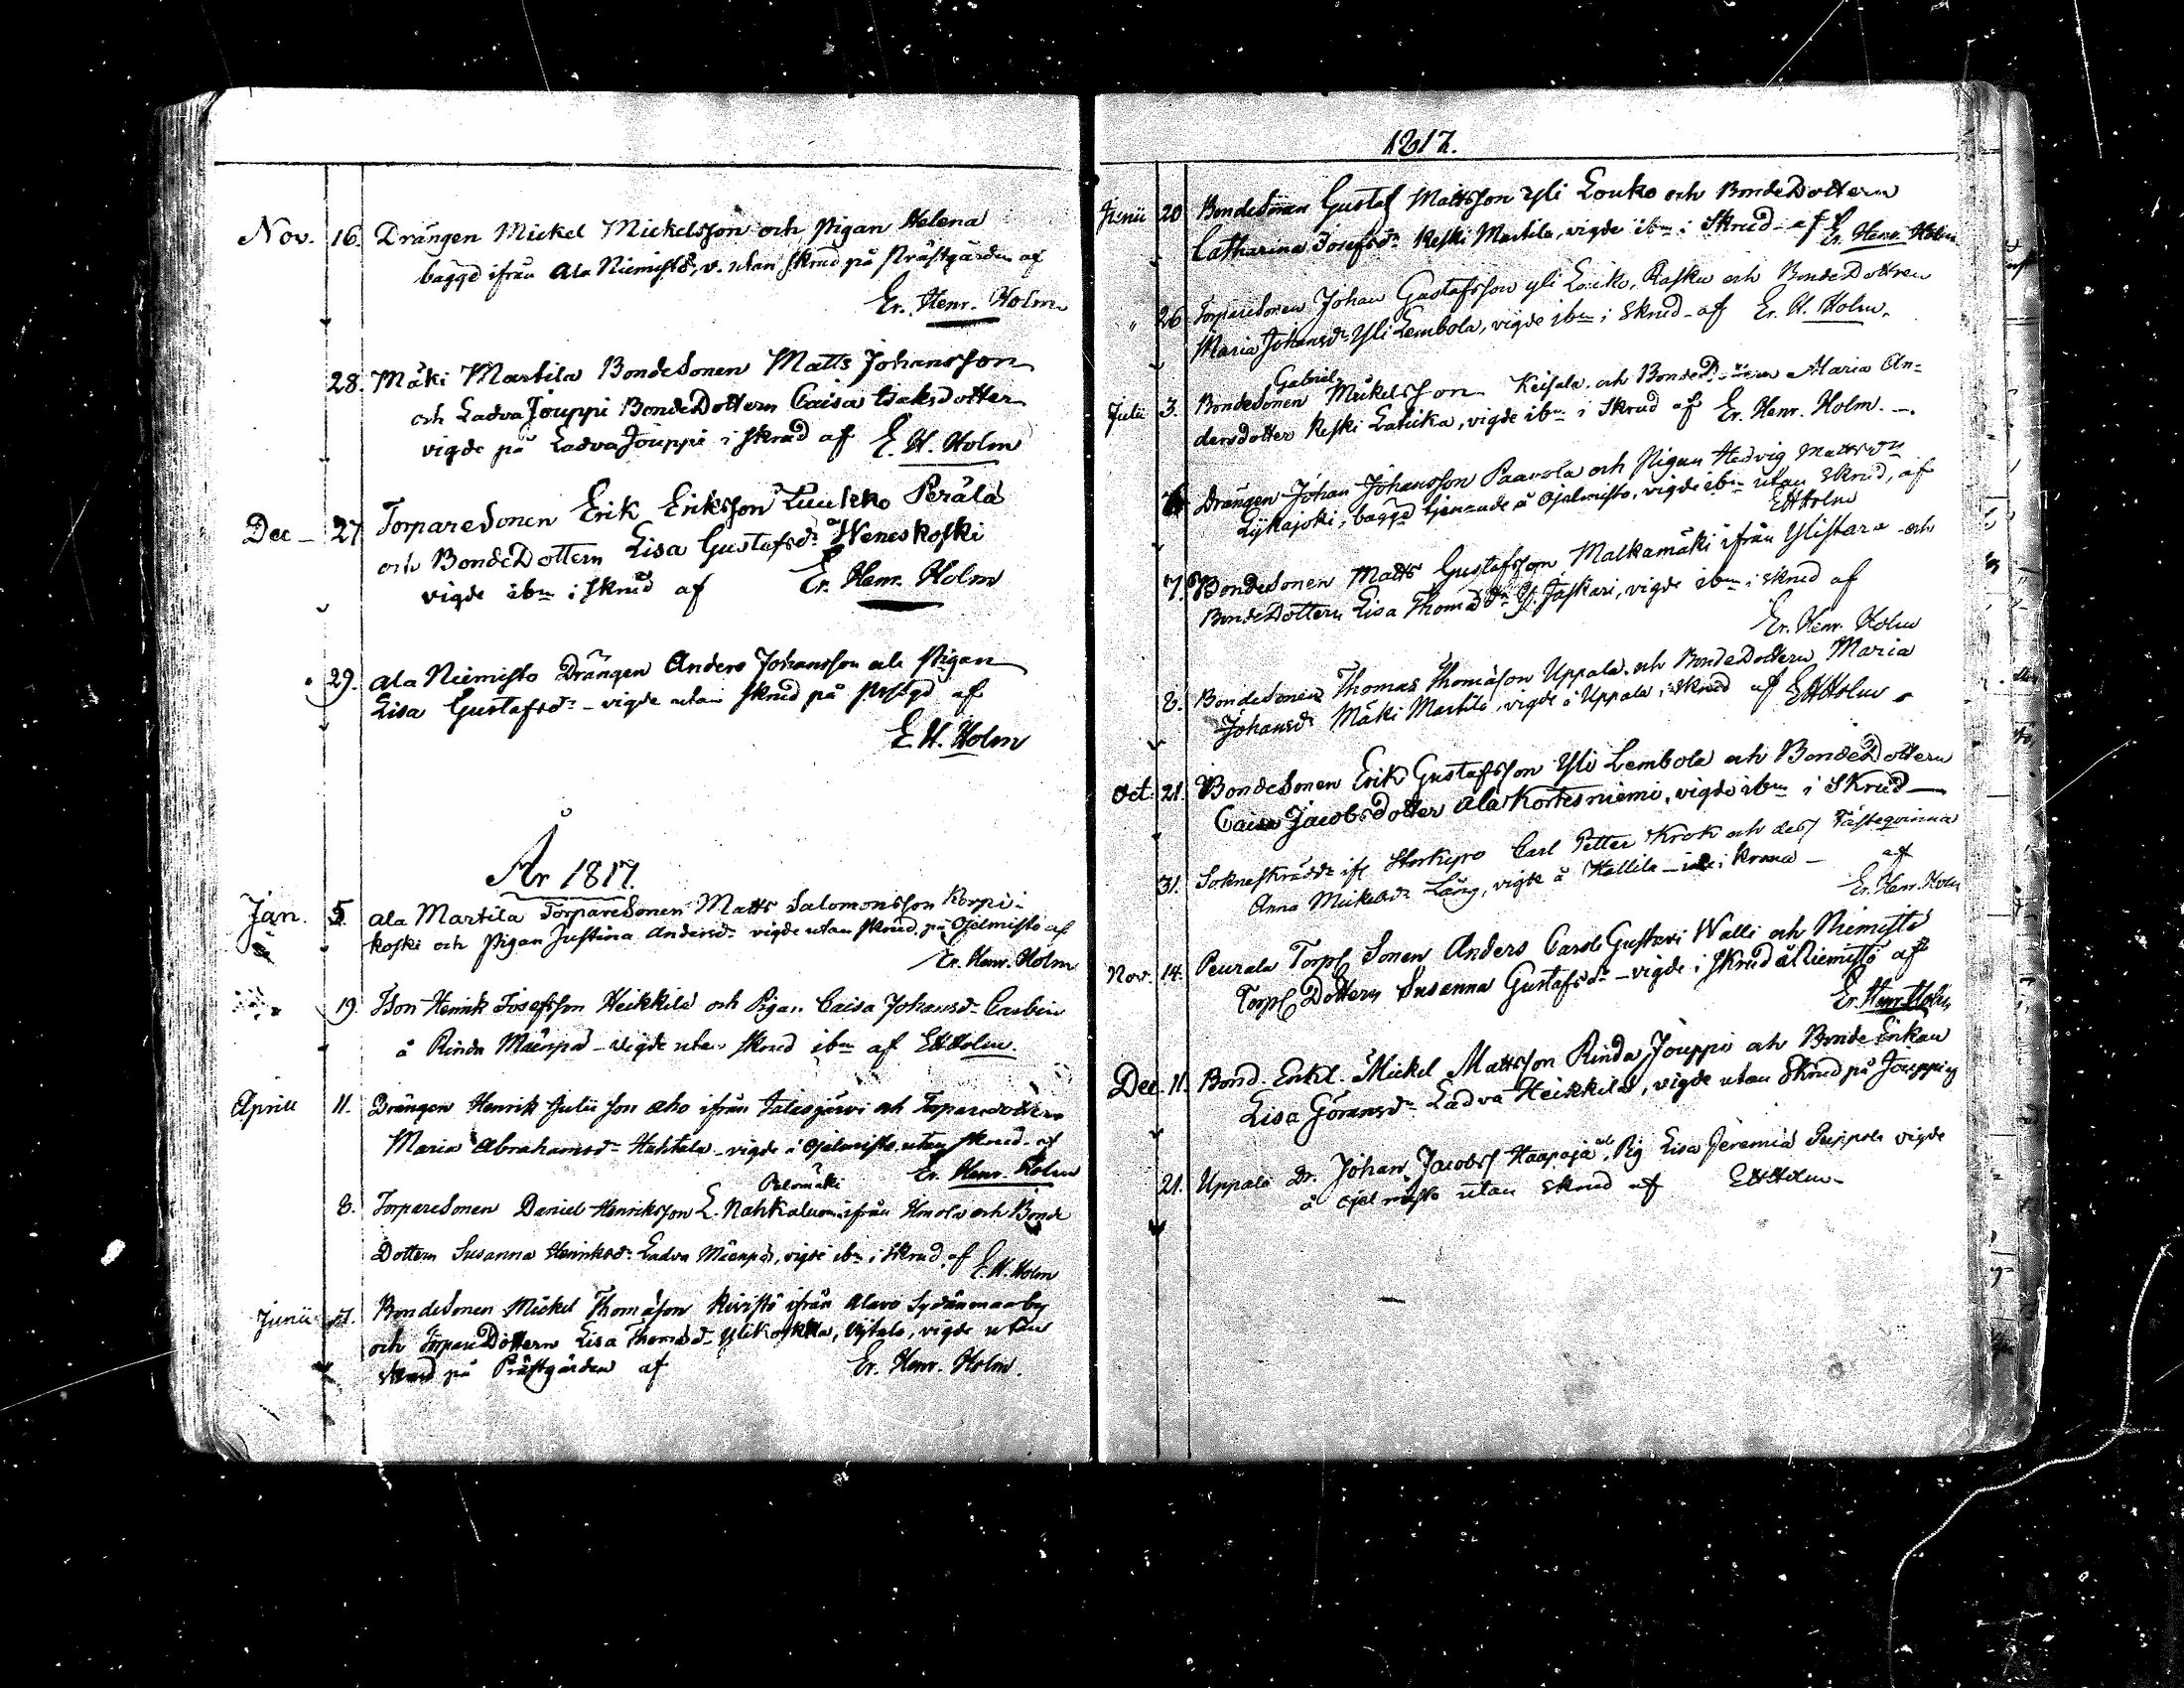 Nov. 16. Drängen Mickel Mickelsson och Pigan Helena
bägge ifrån Ala Niemistö, v. utan skrud på Prästgården af
Er. Henr. Holm
28. Mäki Martila BondeSonen Matts Johansson
och Ladva Jouppi BondeDottern Caisa Isaksdotter
vigde på Ladva Jouppi i skrud af E. H. Holm
Dec 27 TorpareSonen Erik Eriksson Luukko Perälä
och BondeDottern Lisa Gustafsdr Weneskoski
vigde ibm i skrud af Er. Henr. Holm
29. Ala Niemistö Drängen Anders Johansson och Pigan
Lisa Gustafsdr - vigde utan skrud på Prstgd af
E. H. Holm
År 1817.
Jan. 5 Ala Martila TorpareSonen Matts Salomonsson Korpi-
koski och Pigan Justina Andersdr vigde utan skrud på Ojelmisto af
Er. Henr. Holm
19. Henrik Josefsson Heikkilä och Pigan Caisa Johansd.
å Rinda Mäenpä - vigde utan skrud ibm af EHHolm.
Aprill 11. Drängen Henrik ifrån och
Maria Abrahamsd. - vigde å Ojelmisto utan skrud af
Er. Henr. Holm
Palomäki
8. TorpareSonen Daniel Henriksson L. ifrån och Bonde
Dottern Susanna Henriksd. Ladva Mäenpä, vigde ibm i skrud af E. H. Holm
Junii BondeSonen Mickel Thomasson Kivistö ifrån Alavo Sydänmaaby
och TorpareDottern Lisa Thomasd. vigde utan
skrud på Prästgården af Er. Henr. Holm.
1817.
Junii 20 BondeSonen Gustaf Mattsson Yli Louko och BondeDottern
Catharina Josefsdr Keski Martila, vigde ibm i Skrud af Er. Henr. Holm
" 26 TorpareSonen Johan Gustafsson Yli Louko, Rasku och BondeDottren
Maria Johansdr Yli Lembola, vigde ibm i Skrud - af Er. H. Holm.
Gabriel
Julii 3. BondeSonen Mickelsson Keisala och Maria An-
dersdotter Keski Lahika, vigde ibm i skrud af Er. Henr. Holm.
Drängen Johan Johansson Paavola och Pigan Hedvig Mattsdr
bägge tjenande å Ojelmisto, vigde ibm utan Skrud, af
EHHolm
7. BondeSonen Matts Gustafsson Malkamäki ifrån Ylistaro och
BondeDottern Lisa Thomasdr Y. Jaskari, vigde ibm i skrud af
Er. Henr. Holm
8. BondeSonen Thomas Thomasson Uppala och BondeDottern Maria
Johansdr Mäki Martila, vigde å Uppala i skrud af EHHolm
Oct. 21. BondeSonen Erik Gustafsson Yli Lembola och BondeDottern
Caisa Jacobsdotter Ala Kortesniemi, vigde ibm i Skrud
31. Carl Petter Krok och dess Fästeqvinna
Anna Mickelsdr Lång, vigde å Kallila - i krona - af
Er. Henr. Holm
Nov. 14. Peurala Torp Sonen Anders Carl Gustavi Walli och Niemistö
Torp Dottern Susanna Gustafsdr - vigde i skrud å Niemistö af
Er. Henr. Holm
Dec. 11. Bond. Enkl. Mickel Mattsson Rinda Jouppi och Bonde Enkan
Lisa Göransdr Ladva Heikkilä, vigde utan Skrud på Jouppi
21. Uppala Dr. Johan Jacobss Haapoja och Pig. Lisa Jeremiad. vigde
å utan skrud af EHHolm